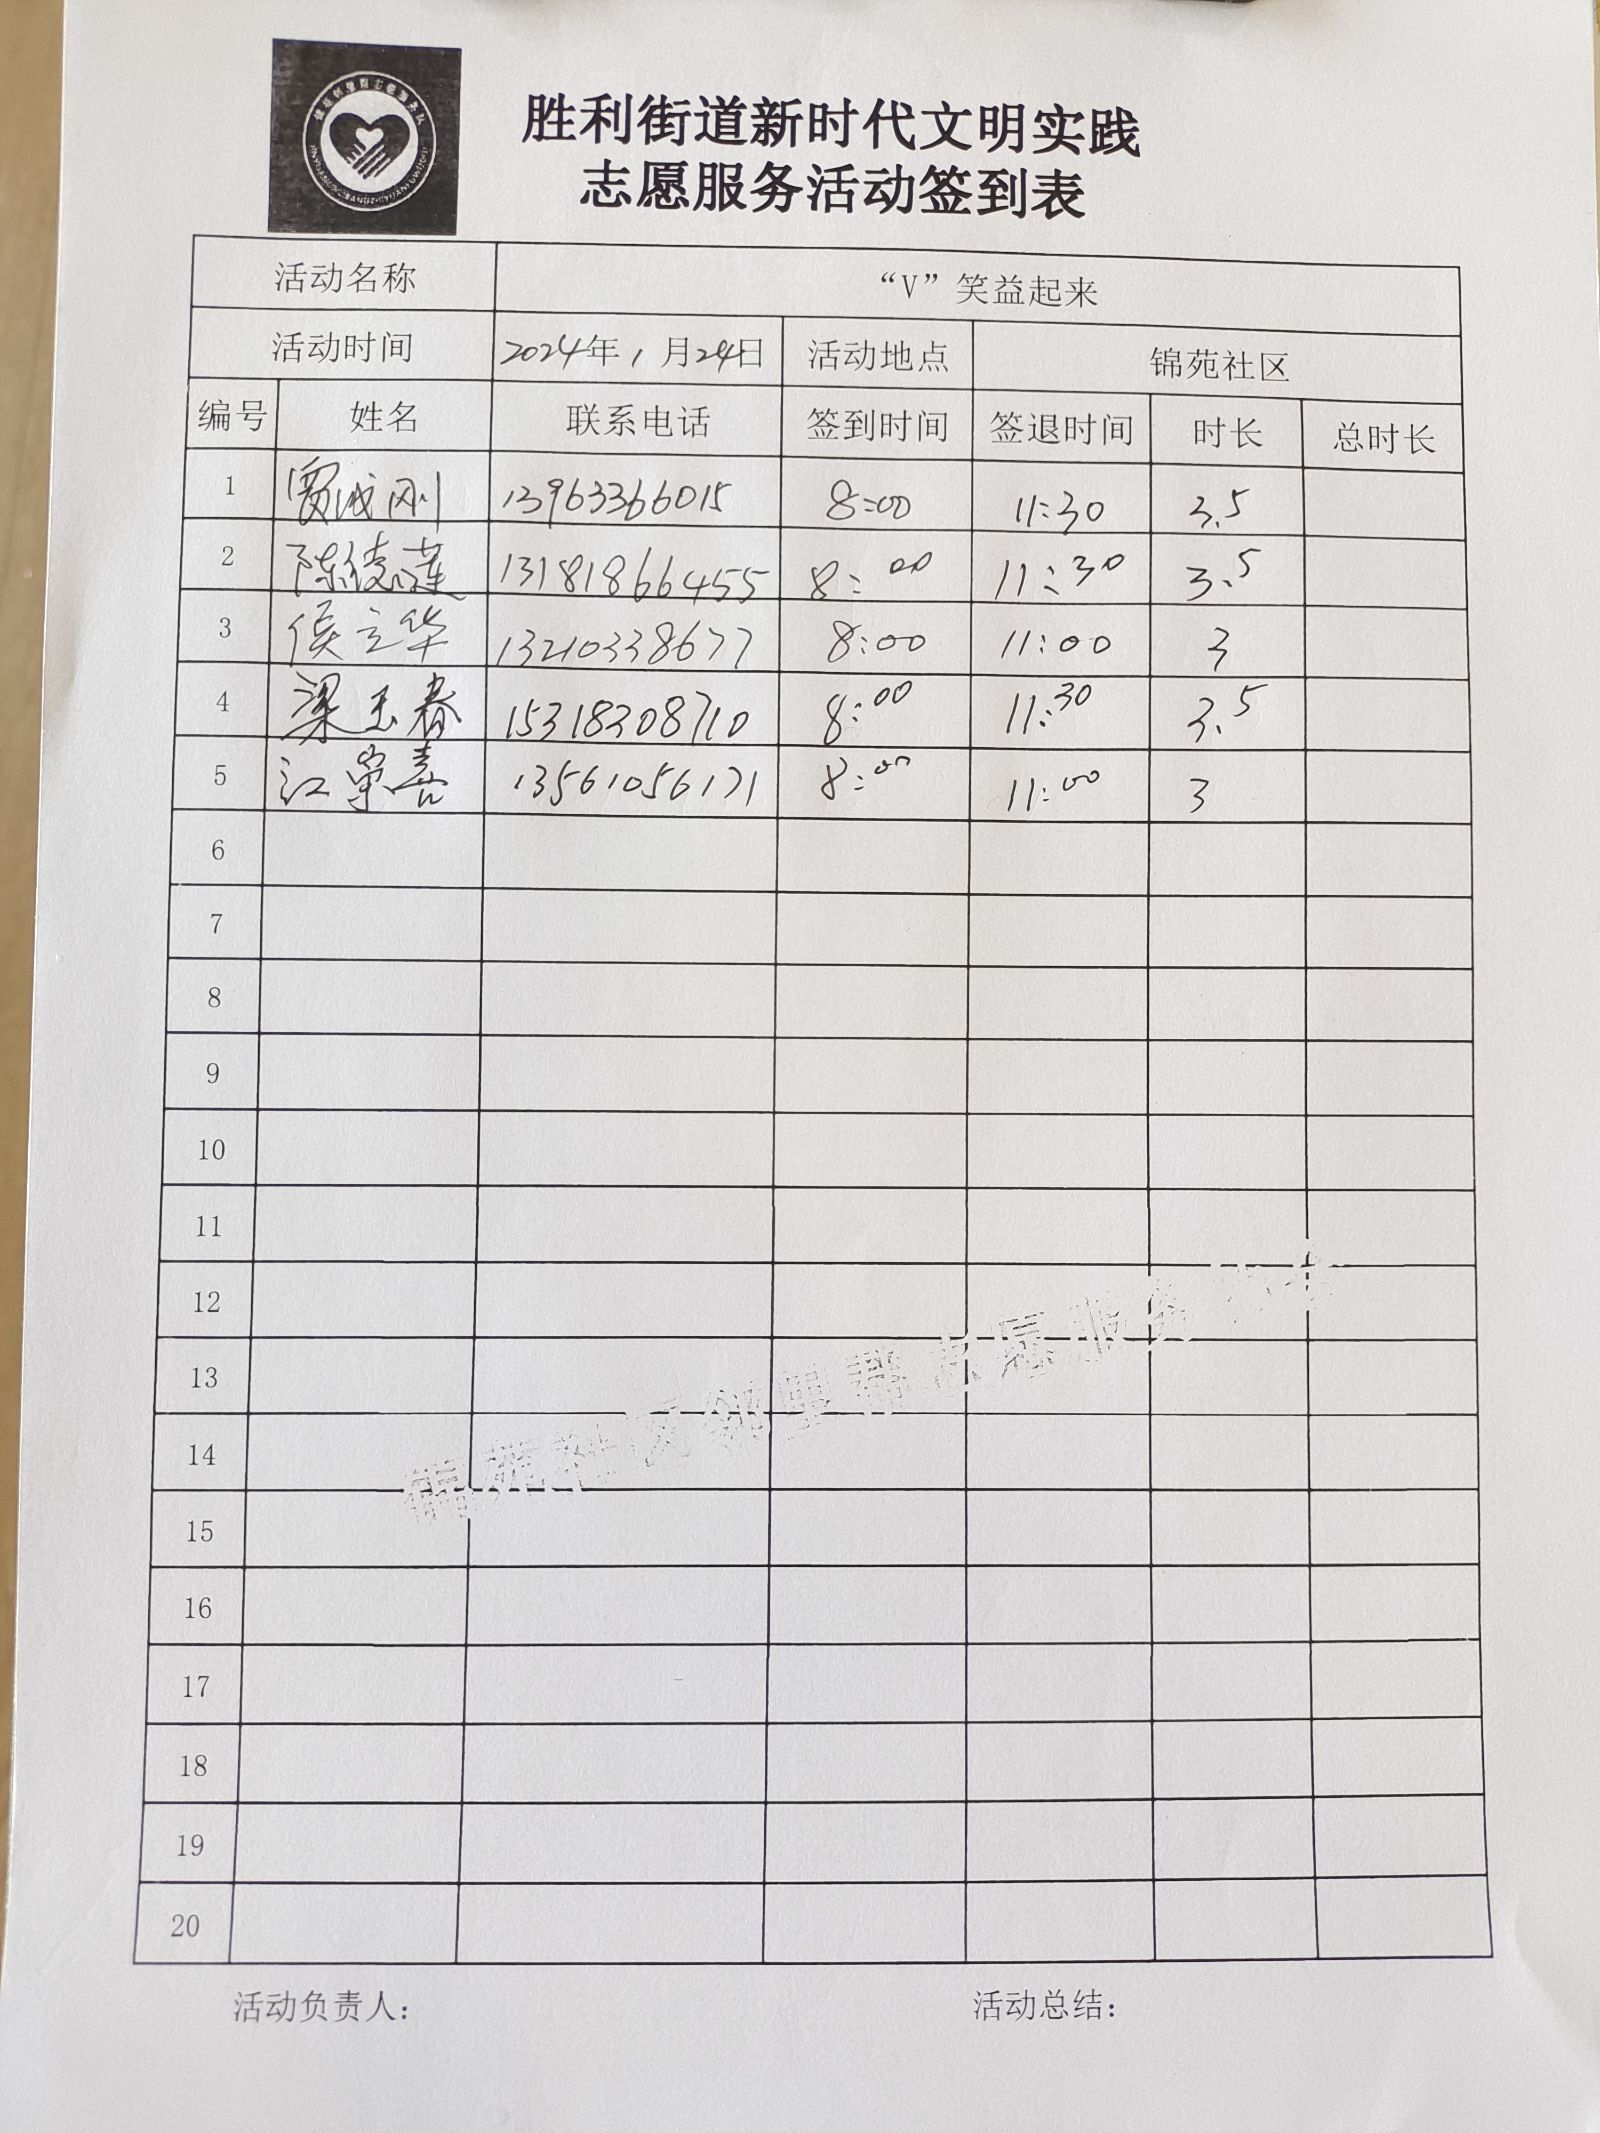 胜利街道新时代文明实践
志愿服务活动签到表
活动名称 “V”笑益起来
活动时间 2024年1月24日 活动地点 锦苑社区
编号 姓名 联系电话 签到时间 签退时间 时长 总时长
1 贾成刚 13963366015 8:00 11:30 3.5
2 陈德莲 13181866455 8:00 11:30 3.5
3 侯立华 13210338677 8:00 11:00 3
4 梁玉春 15318208710 8:00 11:30 3.5
5 江崇喜 13561056171 8:00 11:00 3
6
7
8
9
10
11
12
13
锦苑社区邻里帮志愿服务
14
15
16
17
18
19
20
活动负责人: 活动总结: